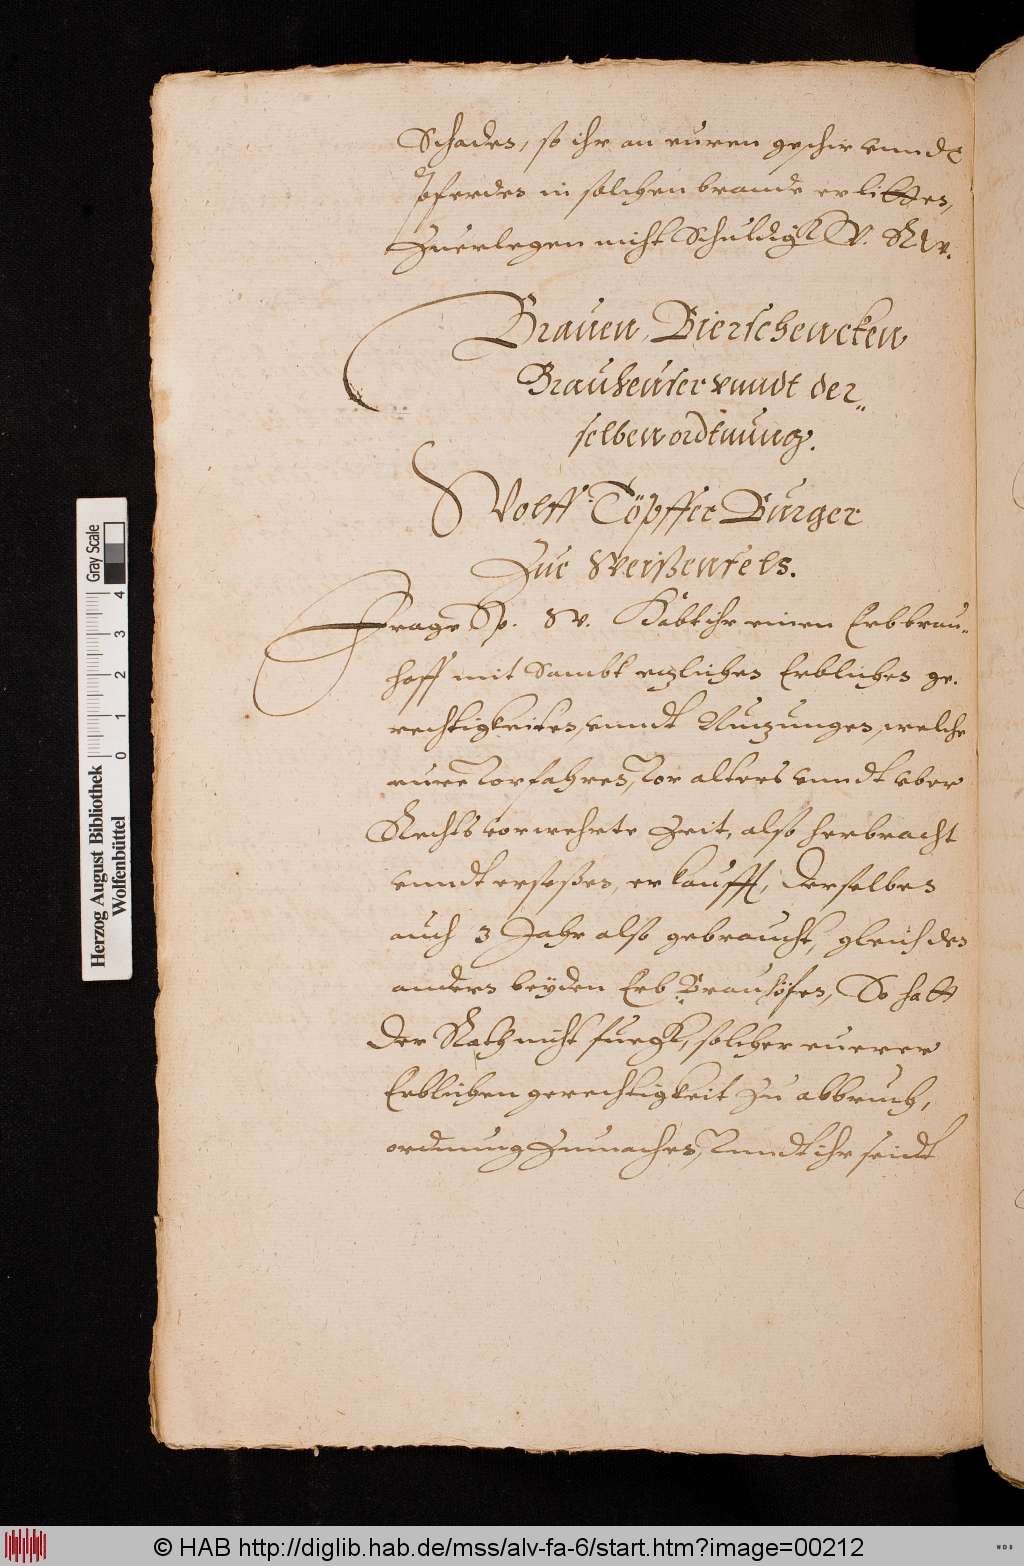 Schaden, so ihr an euren geschir vnndt
pferden in solchen brande erlitten,
Zuerlegen nicht Schuldigk V. R. W.
Brauen, Bierschencken
Brauheuser vnndt der„
selben ordtnung.
Wolff Töpffer Burger
Zue Weißenfels.
Frage Sp. W. Habt ihr einen Erbbrau„
hoff mit Sambt etzlichen Erblichen ge„
rechtigkeiten, vnndt Nutzungen, welche
eure Vorfahren, Vor alters vnndt vber
Rechts vorwehrte Zeit, also herbracht
vnndt erseßen, erkaufft, Derselben
auch 3 Jahr also gebraucht, gleich den
andern beÿden Erb Brauhöfen, So hatt
Der Rath nicht fueg, solcher euerer
Erblichen gerechtigkeit Zu abbruch,
ordnung Zumachen, Vnndt ihr seidt
Herzog August Bibliothek
Wolfenbüttel
Gray Scale
0 1 2 3 4
© HAB http://diglib.hab.de/mss/alv-fa-6/start.htm?image=00212
WDB